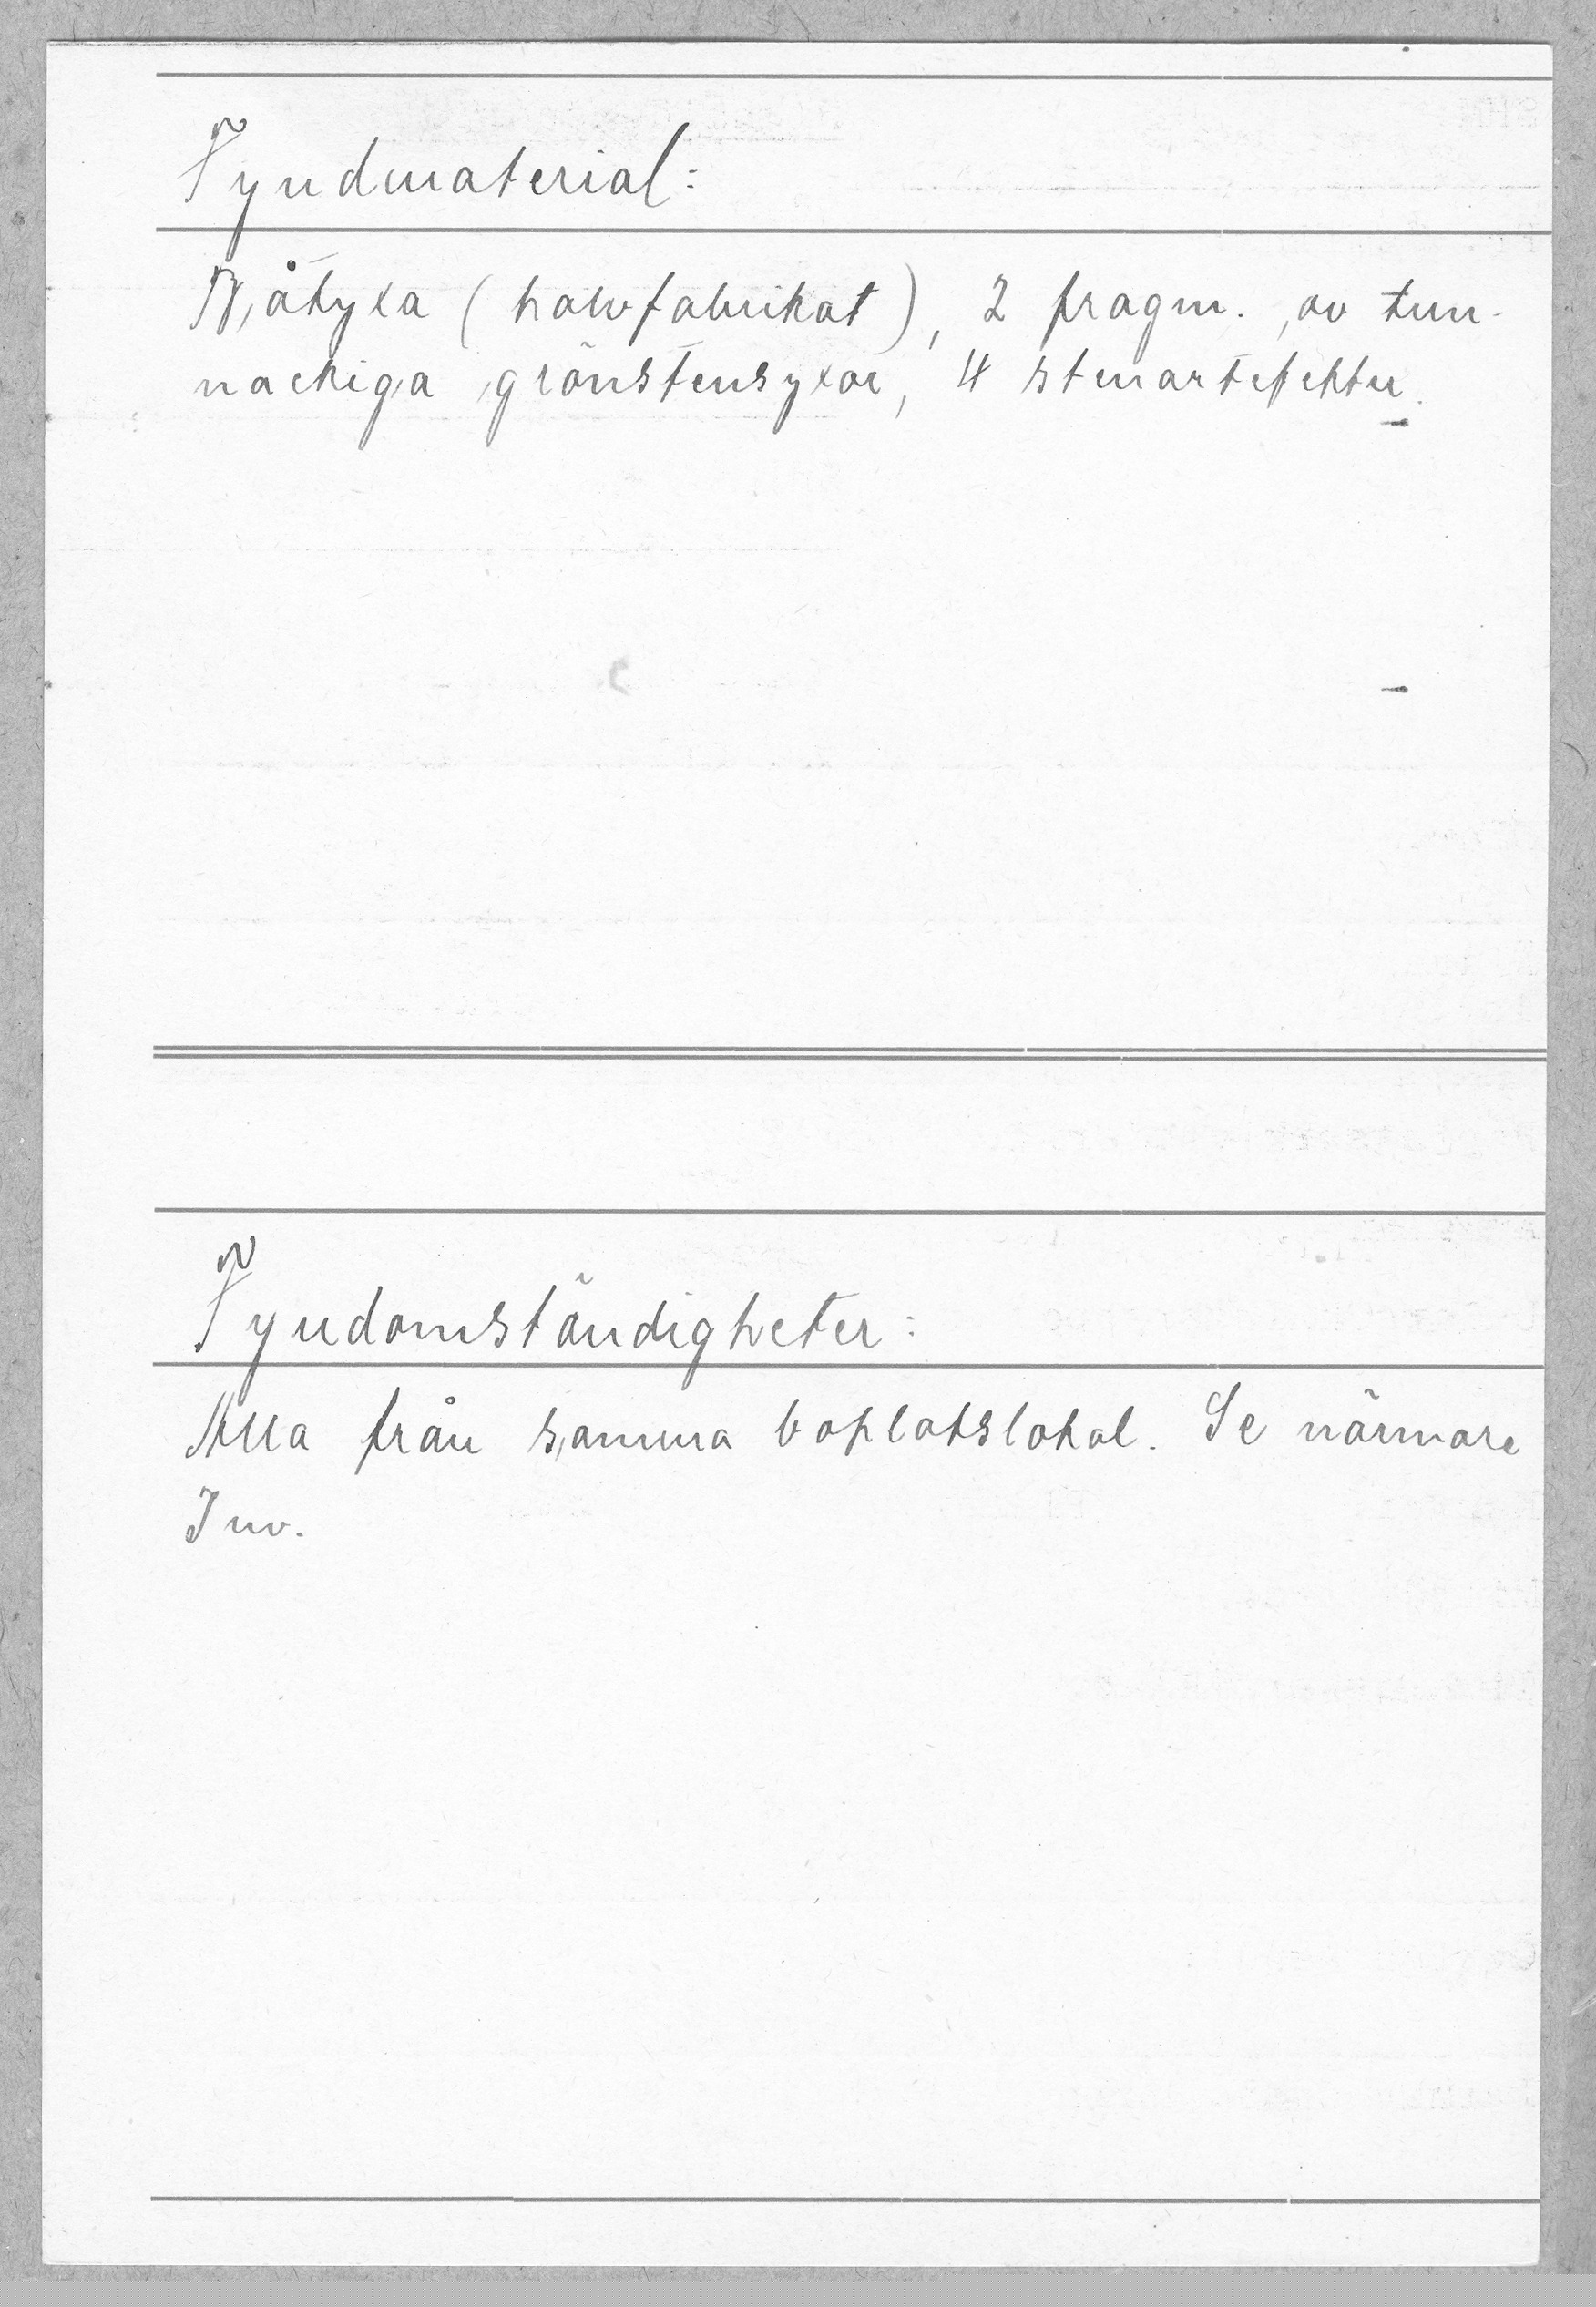 Fyndmaterial:
Båtyxa (halvfabrikat), 2 fragm. av tun-
nackiga grönstensyxor, 4 stenartefekter.
Fyndomständigheter:
Alla från samma boplatslokal. Se närmare
Inv.